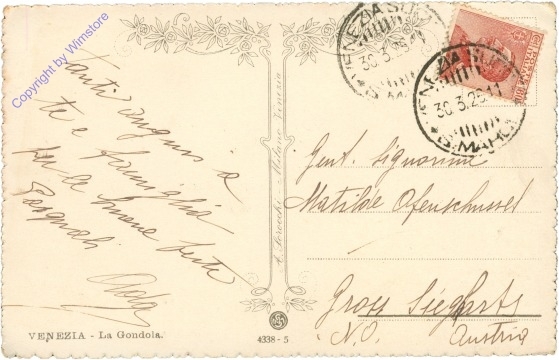 Copyright by Wimstore
VENEZIA SUCC
30.3.26.11
S. MARCO
VENEZIA SUCC
30.3.26.11
S. MARCO
Tanti auguri a
te e famiglia
per le buone feste
Pasquali
Gent. Signorina
Matilde Ofenschüssel
Gross Siegharts
N.O. Austria
A. Scrocchi - Milano Venezia
VENEZIA - La Gondola.
4338 - 5